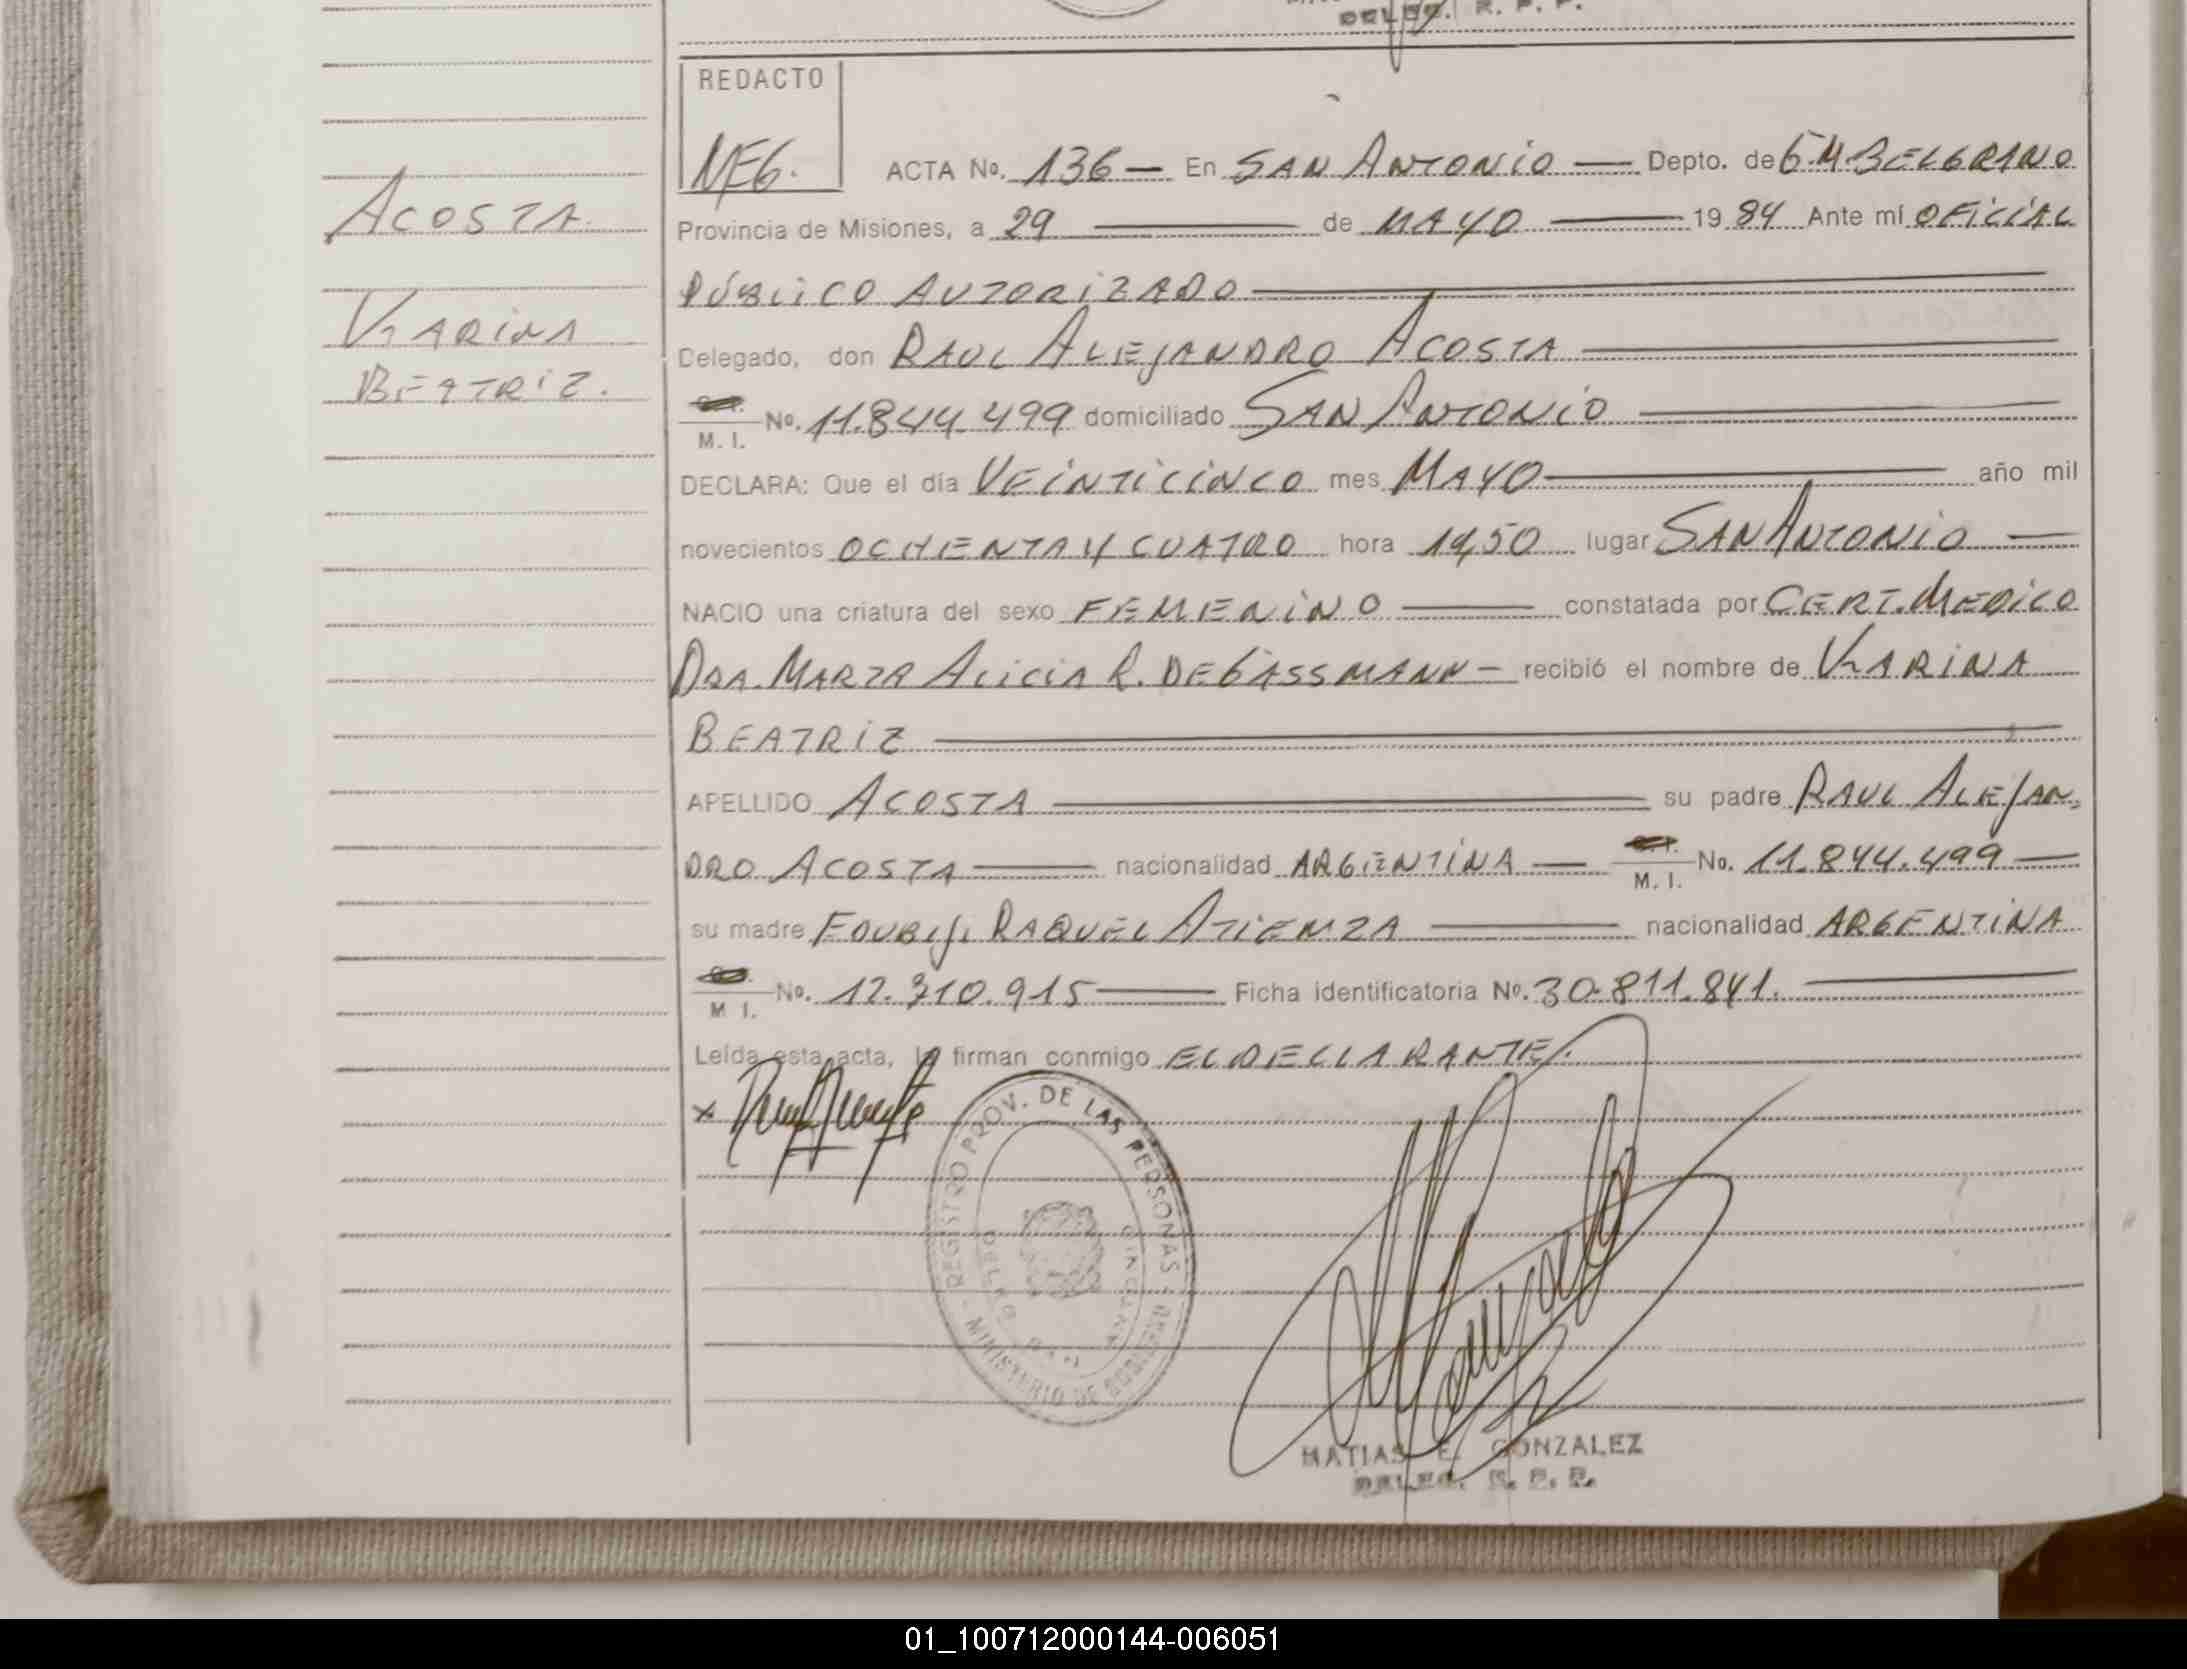 DELEG. R. P. P.
REDACTO
MEG.
ACTA No. 136 — En SAN ANTONIO — Depto. de G.M. BELGRANO
Provincia de Misiones, a 29 — de MAYO — 19 84 Ante mí OFICIAL
PÚBLICO AUTORIZADO
Delegado, don RAUL ALEJANDRO ACOSTA
M. I. No. 11.844.499 domiciliado SAN ANTONIO
DECLARA: Que el día VEINTICINCO mes MAYO — año mil
novecientos OCHENTA Y CUATRO hora lugar SAN ANTONIO —
NACIO una criatura del sexo FEMENINO — constatada por CERT. MEDICO
DRA. MARTA ALICIA R. DE GASSMANN — recibió el nombre de KARINA
BEATRIZ
APELLIDO ACOSTA — su padre RAUL ALEJAN=
DRO ACOSTA — nacionalidad ARGENTINA — M. I. No. 11.844.499 —
su madre RAQUEL ATIENZA — nacionalidad ARGENTINA
M. I. No. 12.310.915 — Ficha identificatoria No. 30.811.841.
Leída esta acta, la firman conmigo EL DECLARANTE.
ACOSTA
KARINA
BEATRIZ.
x
REGISTRO PROV. DE LAS PERSONAS
MINISTERIO DE GOBIERNO
DELEG. SAN ANTONIO
MATIAS E. GONZALEZ
DELEG. R. P. P.
01_100712000144-006051